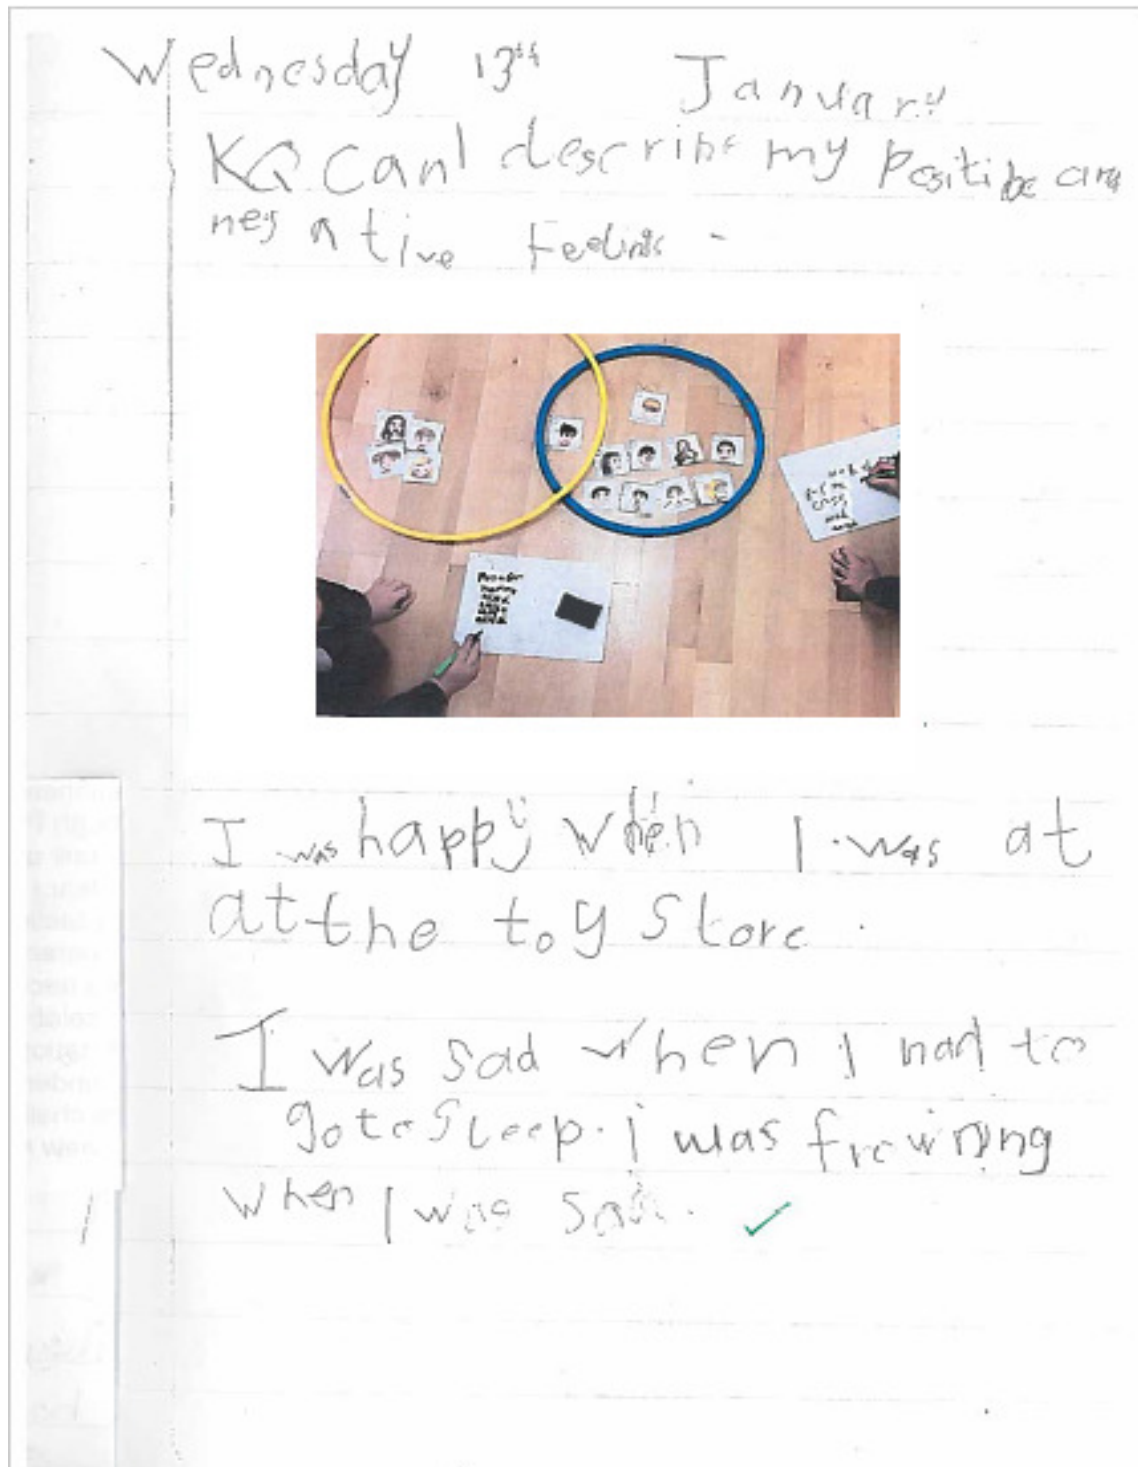 Wednesday 13th January
KQ Can I describe my Positive and
negative feelings.
I was happy when I was at
at the toy store.
I was sad when I had to
go to sleep. i was frowning
when I was sad.